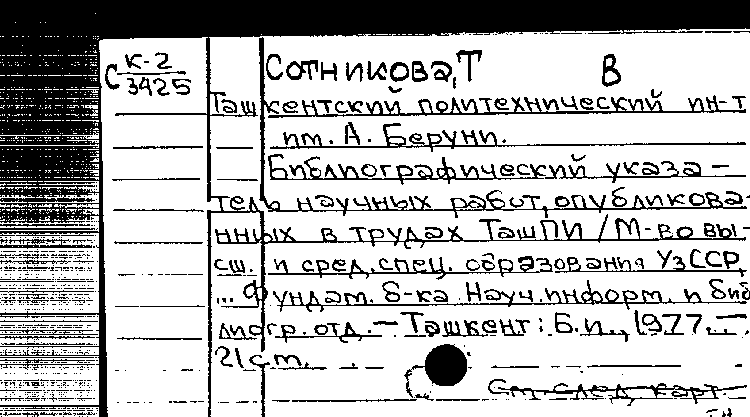 С К-2/3425
Сотникова, Т В
Ташкентский политехнический ин-т
им. А. Беруни.
Библиографический указа-
тель научных работ, опубликова-
нных в трудах ТашПИ / М-во вы-
сш. и сред. спец. образования УзССР,
... Фундам. б-ка. Науч. информ. и биб
лиогр. отд. — Ташкент: Б.и., 1977. —
21 см.
См след карт